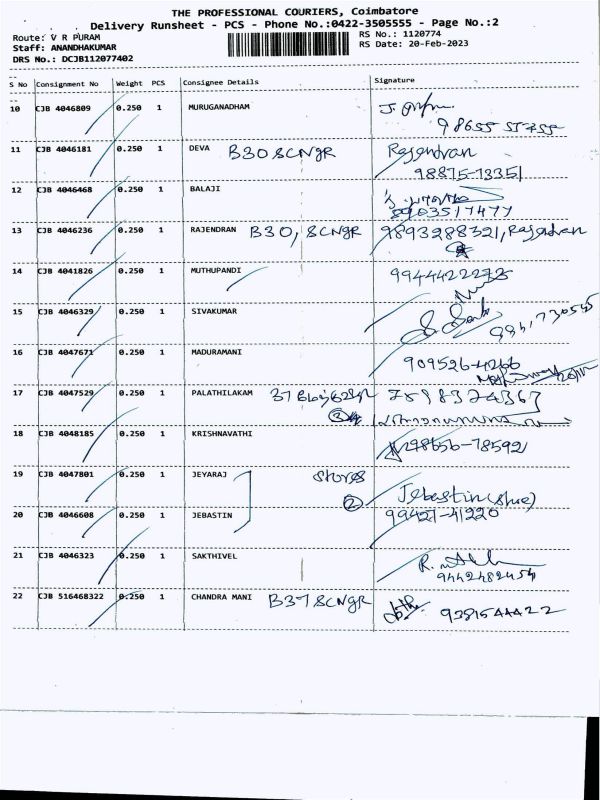 THE PROFESSIONAL COURIERS, Coimbatore
Delivery Runsheet - PCS - Phone No.:0422-3505555 - Page No.:2
Route: V R PURAM
RS No.: 1120774
Staff: ANANDHAKUMAR
RS Date: 20-Feb-2023
DRS No.: DCJB112077402
S No Consignment No Weight PCS Consignee Details Signature
10 CJB 4046809 0.250 1 MURUGANADHAM
11 CJB 4046181 0.250 1 DEVA B30 SCNGR Rajendran
98875-13351
12 CJB 4046468 0.250 1 BALAJI
8903517477
13 CJB 4046236 0.250 1 RAJENDRAN B30, SCNGR 9893288321, Rajendran
14 CJB 4041826 0.250 1 MUTHUPANDI 9944422273
15 CJB 4046329 0.250 1 SIVAKUMAR
16 CJB 4047671 0.250 1 MADURAMANI
909526-4266
17 CJB 4047529 0.250 1 PALATHILAKAM 37 7598374367
18 CJB 4048185 0.250 1 KRISHNAVATHI 98656-78592
19 CJB 4047801 0.250 1 JEYARAJ Stores
2 Jebastin
20 CJB 4046608 0.250 1 JEBASTIN 99427-41220
21 CJB 4046323 0.250 1 SAKTHIVEL
9442482454
22 CJB 516468322 0.250 1 CHANDRA MANI B37 SCNGR 9381544422